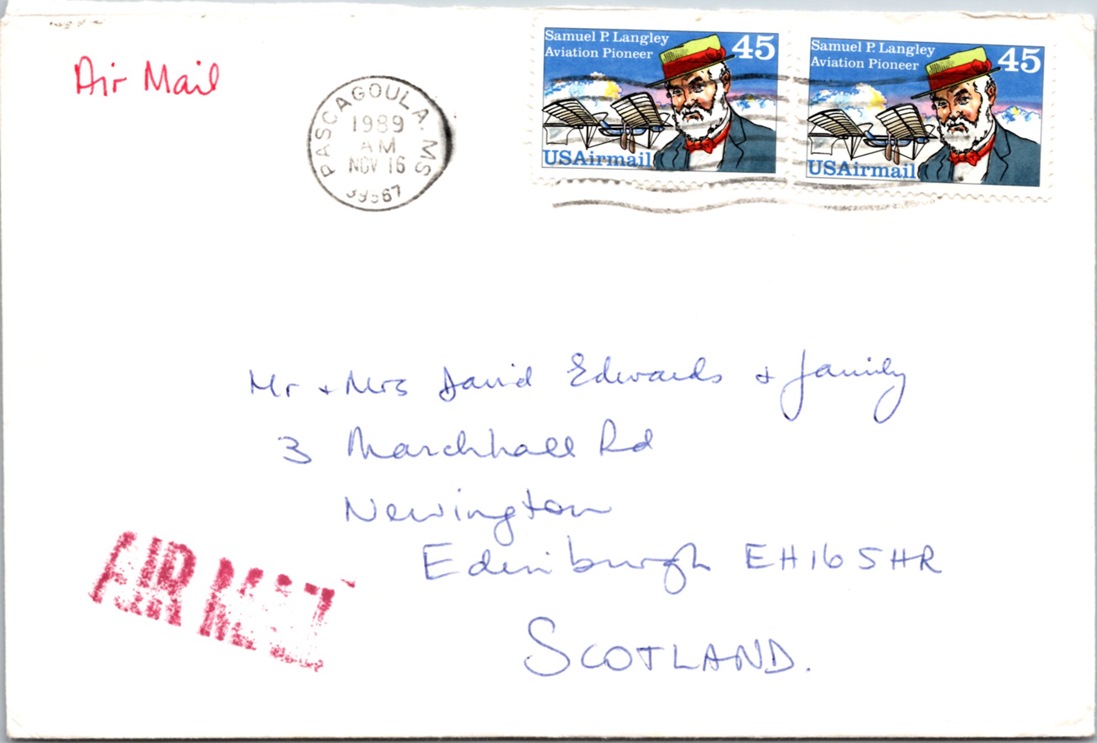 Air Mail
PASCAGOULA. MS
1989
AM
NOV 16
39567
Samuel P. Langley
Aviation Pioneer
45
USAirmail
Samuel P. Langley
Aviation Pioneer
45
USAirmail
Mr + Mrs David Edwards + family
3 Marchhall Rd
Newington
Edinburgh EH16 5HR
SCOTLAND.
AIR MAIL